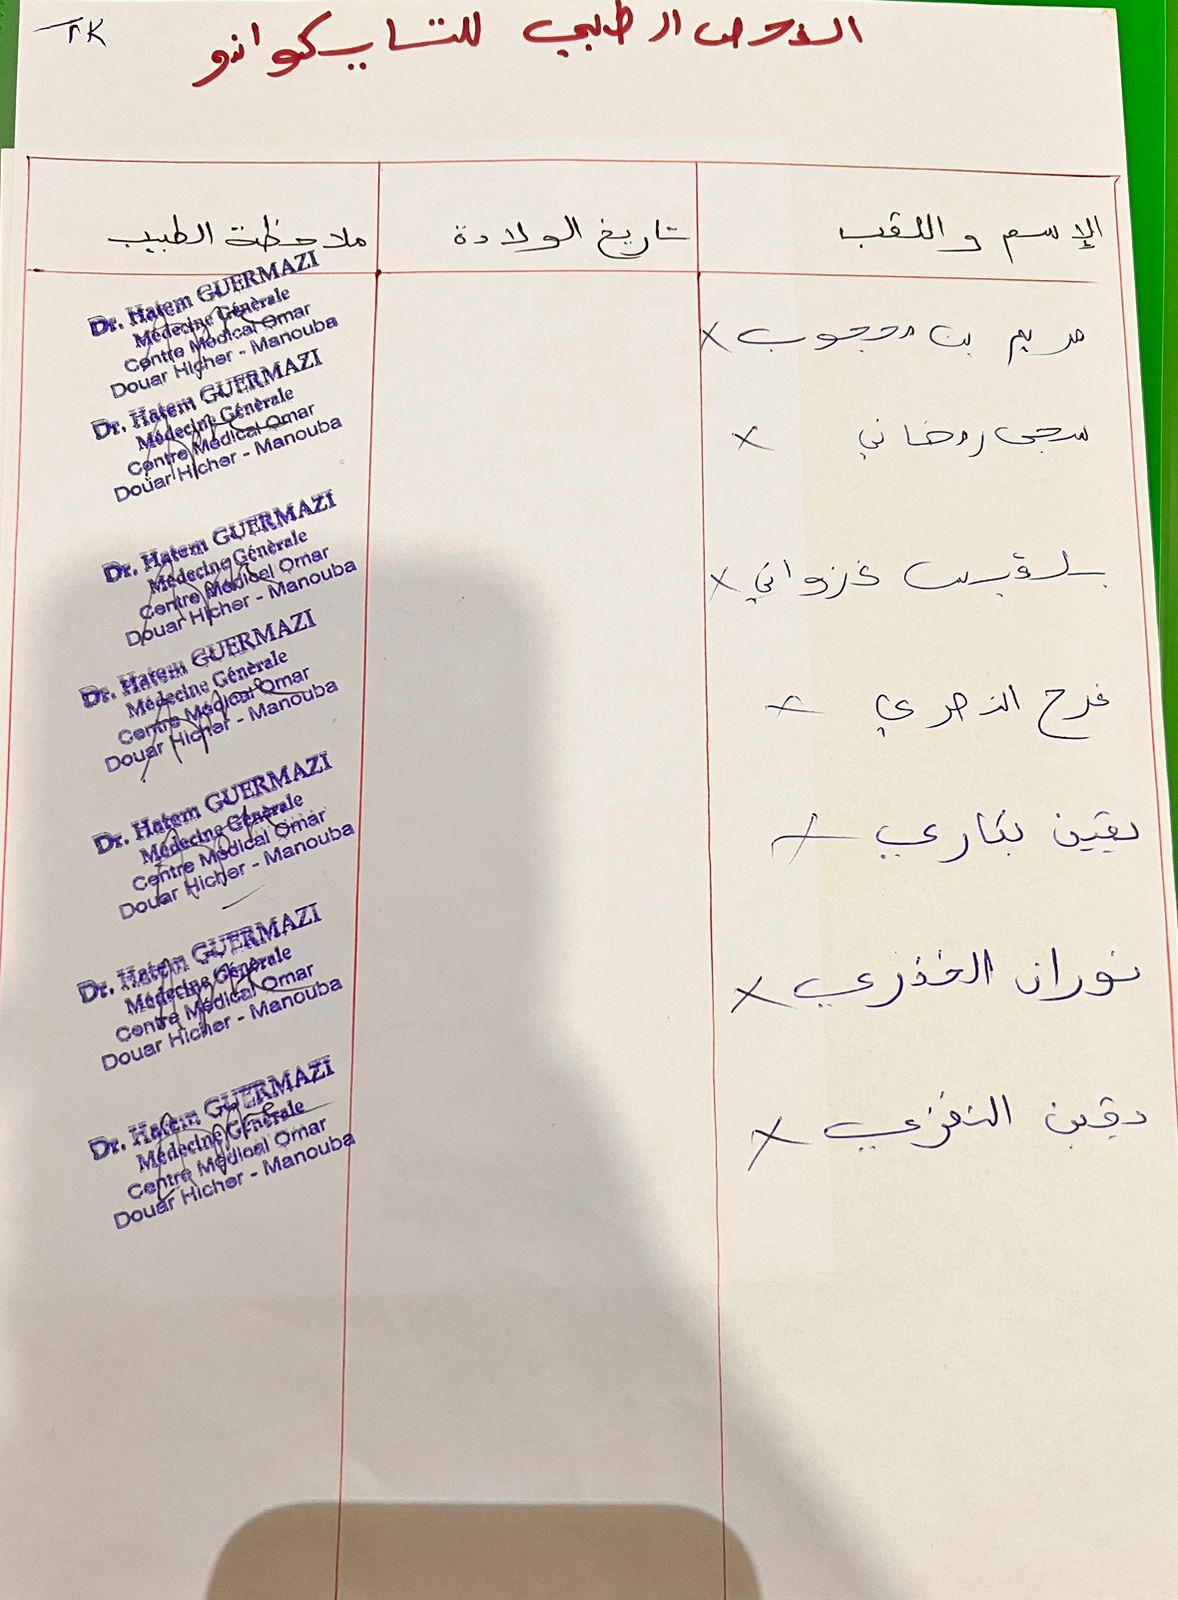 TK
الفحص الطبي للتايكواندو
الإسم واللقب
تاريخ الولادة
ملاحظة الطبيب
مريم بن محجوب ×
Dr. Hatem GUERMAZI
Médecine Générale
Centre Médical Omar
Douar Hicher - Manouba
سجى رمضاني ×
Dr. Hatem GUERMAZI
Médecine Générale
Centre Médical Omar
Douar Hicher - Manouba
بلقيس غزواني ×
Dr. Hatem GUERMAZI
Médecine Générale
Centre Médical Omar
Douar Hicher - Manouba
فرح ×
Dr. Hatem GUERMAZI
Médecine Générale
Centre Médical Omar
Douar Hicher - Manouba
يقين بكاري ×
Dr. Hatem GUERMAZI
Médecine Générale
Centre Médical Omar
Douar Hicher - Manouba
نوران الخذري ×
Dr. Hatem GUERMAZI
Médecine Générale
Centre Médical Omar
Douar Hicher - Manouba
يقين النفزي ×
Dr. Hatem GUERMAZI
Médecine Générale
Centre Médical Omar
Douar Hicher - Manouba